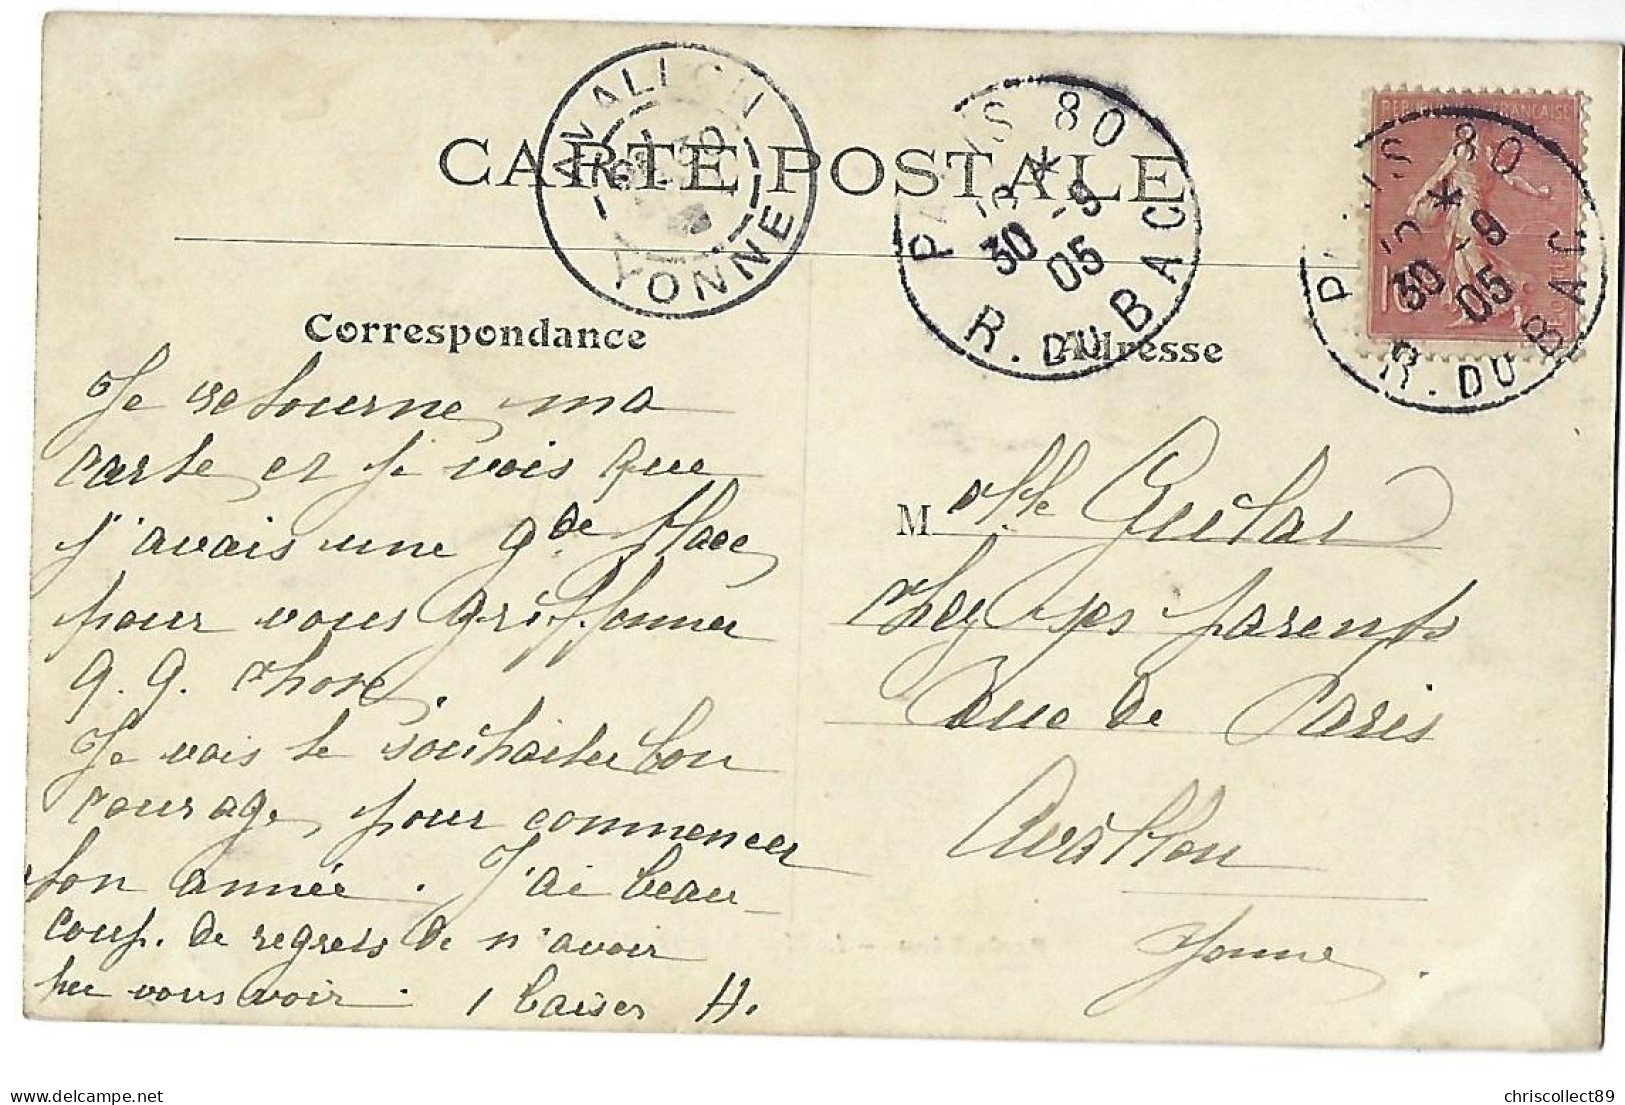 CARTE POSTALE
AVALLON
YONNE
PARIS 80
* 
30 -9
05
R. DU BAC
REPUBLIQUE FRANÇAISE
PARIS 80
*
30 -9
05
R. DU BAC
Correspondance
Je retourne ma
carte et je vois que
j'avais une gde place
pour vous griffonner
q. q. chose.
Je vais te souhaiter bon
courage, pour commencer
ton année. J'ai beau-
coup. de regrets de n'avoir
pu vous voir. 1 baiser H.
Adresse
M elle
chez ses parents
Rue de Paris
Avallon
Yonne.
chriscollect89